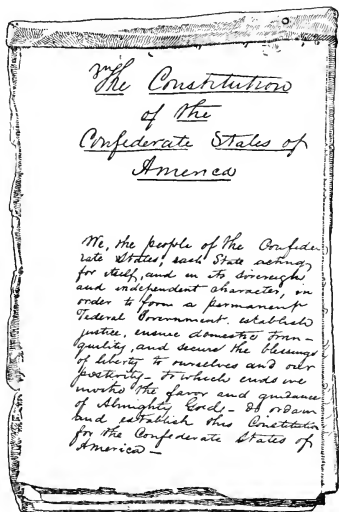 The Constitution
of the
Confederate States of
America
We, the people of the Confede
rate States, each State acting
for itself, and in its sovereign
and independent character, in
order to form a permanent
Federal Government. establish
justice, ensure domestic tran-
quility, and secure the blessings
of liberty to ourselves and our
posterity - to which ends we
invoke the favor and guidance
of Almighty God, - do ordain
and establish this Constitution
for the Confederate States of
America -